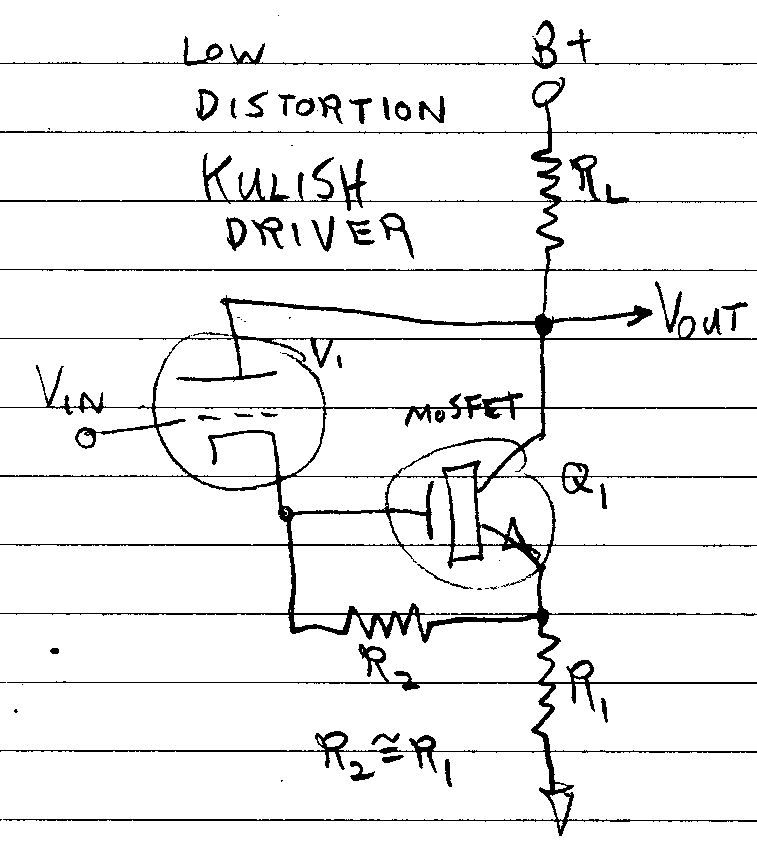 LOW
DISTORTION
KULISH
DRIVER
B+
RL
VOUT
V1
VIN
MOSFET
Q1
R2
R1
R2≅R1